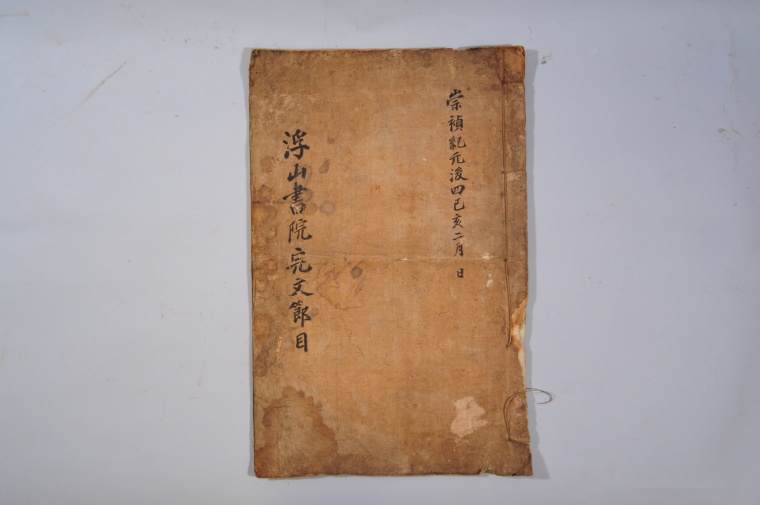 崇禎紀元後四己亥二月 日
浮山書院完文節目